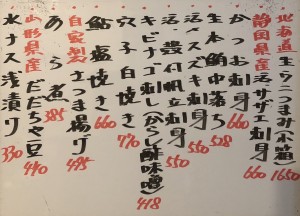 北海道生ウニつまみ(木箱) 1650
静岡県産活サザエ刺身 660
かつお刺身 660
生本鮪中落ち 528
活〆スズキ刺身 550
活〆帆立刺身 550
キビナゴ刺し(からし酢味噌) 418
穴子白焼き 770
鮎塩焼き 660
自家製さつま揚げ 495
あら煮 385
山形県産だだちゃ豆 440
水ナス浅漬け 330